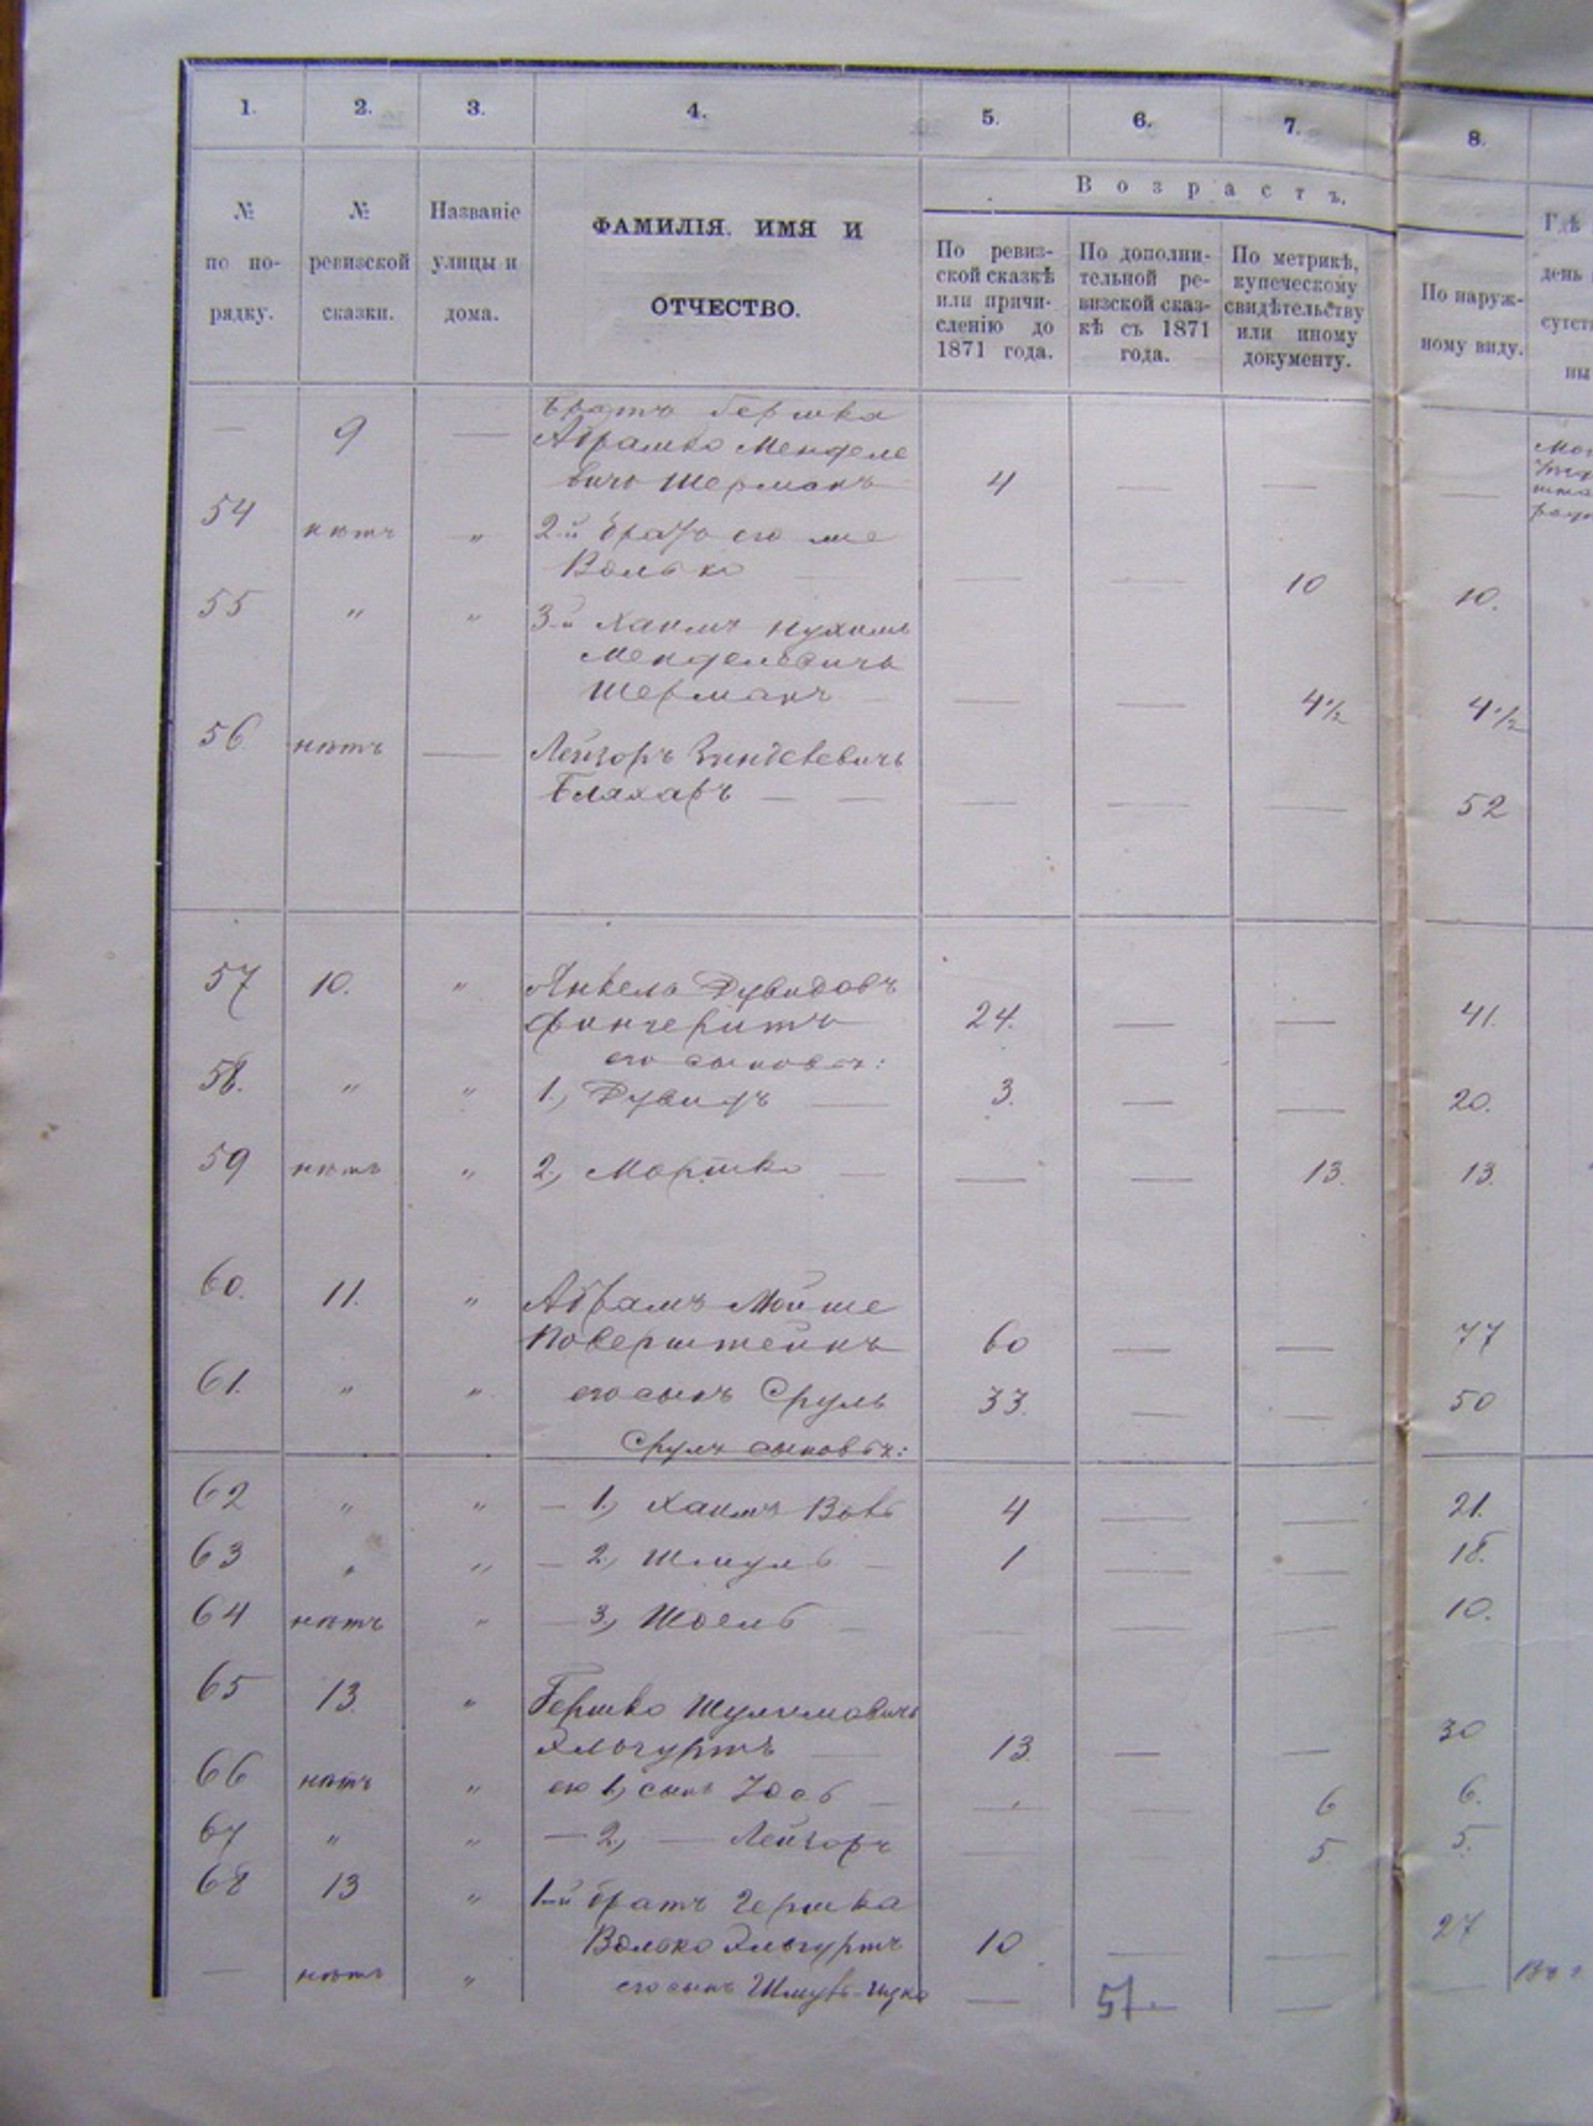 1. 2. 3. 4. 5. 6. 7. 8.
№ по по-рядку.
№ ревизской сказки.
Названіе улицы и дома.
ФАМИЛІЯ, ИМЯ И
ОТЧЕСТВО.
Возрастъ.
По ревиз-
ской сказкѣ
или причи-
сленію до
1871 года.
По дополни-
тельной ре-
визской сказ-
кѣ съ 1871
года.
По метрикѣ,
купеческому
свидѣтельству
или иному
документу.
По наруж-
ному виду.
Гдѣ
день
сутст
ны
Братъ Гершка
— 9 — Абрамко Менделе
вичъ Шерманъ 4 — — —
54 нѣтъ " 2-й братъ его же
Волько — — — 10 10.
55 " " 3-й Хаимъ Нухимъ
Менделевичъ
Шерманъ — — — 4½ 4½
56 нѣтъ — Лейзоръ
Бляхаръ — — — — — 52
57 10. " Янкель Дувидовъ
Фингеритъ 24. — — 41.
его сыновья:
58. " " 1., Дувидъ — 3. — — 20.
59 нѣтъ " 2., Мошко — — — 13. 13.
60. 11. " Абрамъ Мойше
Коверштейнъ 60 — — 77
61. " " его сынъ Сруль 33. — — 50
Сруля сыновья:
62 " " — 1., Хаимъ Вовъ 4 — — 21.
63 " " — 2., Шмуль — 1 — — 18.
64 нѣтъ " — 3., Шоель — — — — 10.
65 13. " Гершко Шулимовичъ
Эльгуртъ — 13. — — 30
66 нѣтъ " его 1., сынъ Іось — — — 6 6.
67 " " — 2., — Лейзоръ — — 5 5.
68 13 " 1-й братъ Гершка
Волько Эльгуртъ 10 — — 27
— нѣтъ " его сынъ — — —
51